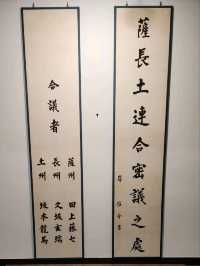 薩長土連合密議之處
合議者
薩州 田上藤七
長州 久坂玄瑞
土州 坂本龍馬